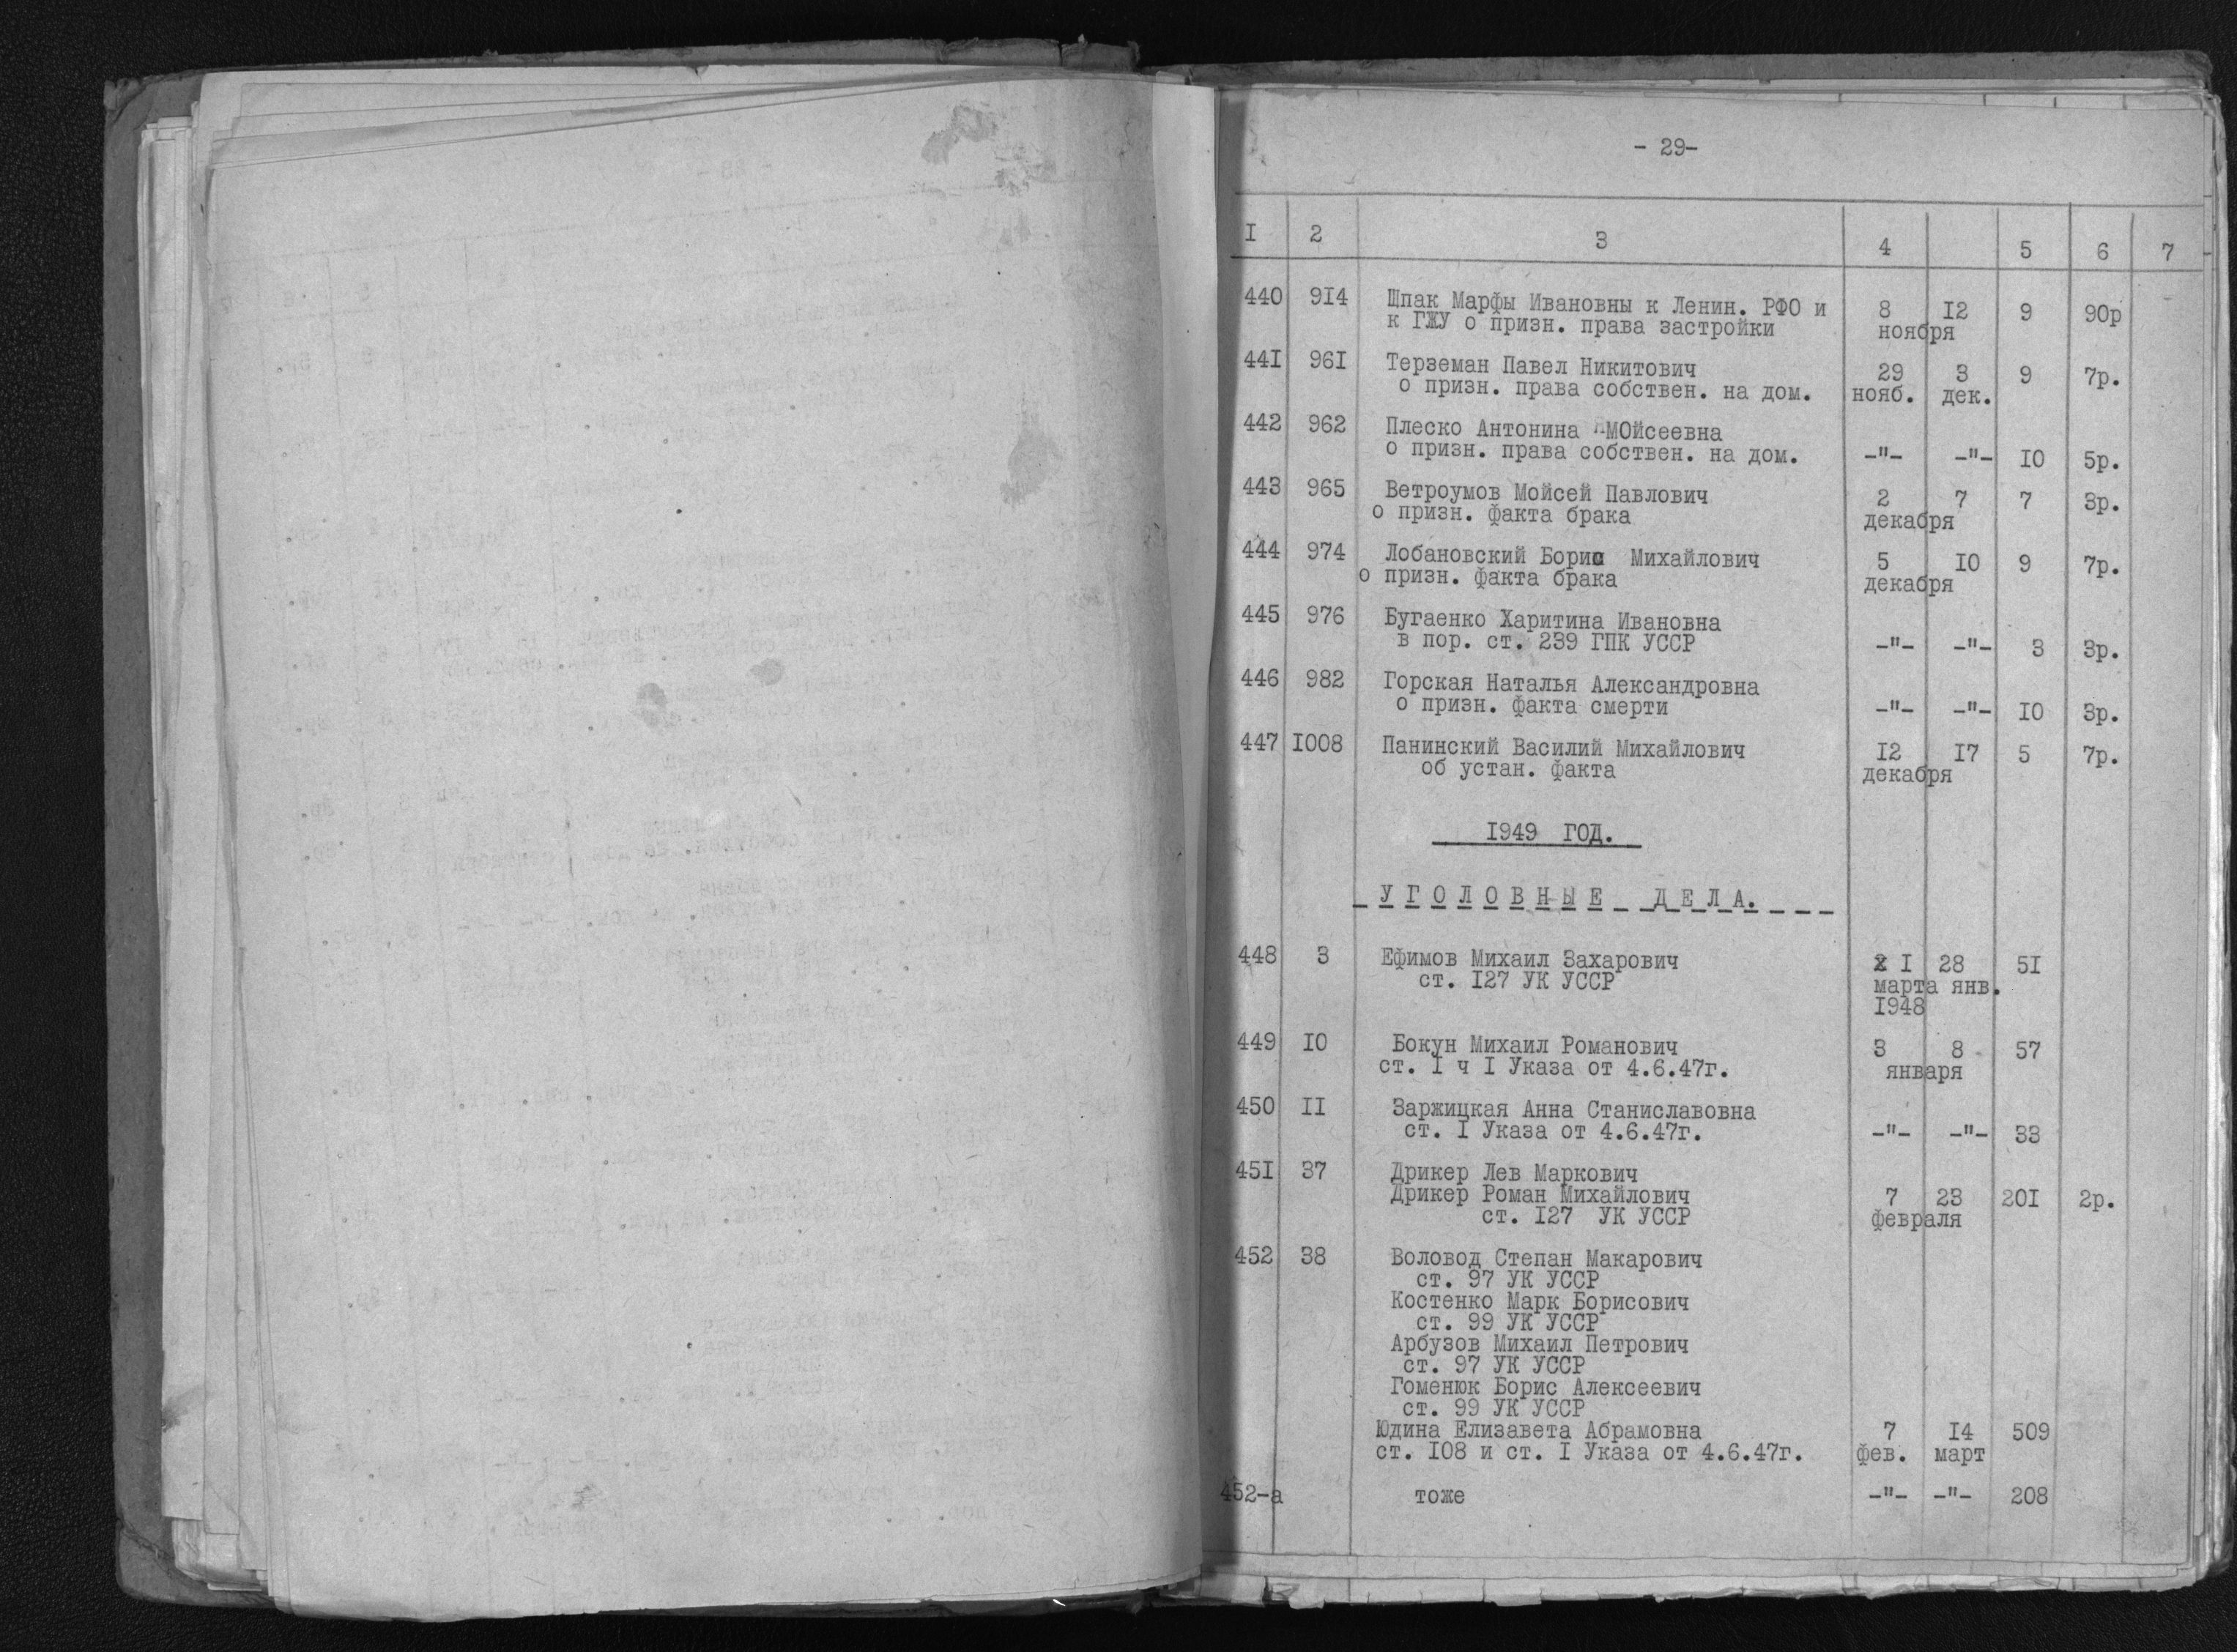 - 29-
I 2 3 4 5 6 7
440 9I4 Шпак Марфы Ивановны к Ленин. РФО и 8 I2 9 90р
к ГЖУ о призн. права застройки ноября
44I 96I Терземан Павел Никитович 29 3 9 7р.
о призн. права собствен. на дом. нояб. дек.
442 962 Плеско Антонина МОйсеевна
о призн. права собствен. на дом. -"- -"- IO 5р.
443 965 Ветроумов Мойсей Павлович 2 7 7 3р.
о призн. факта брака декабря
444 974 Лобановский Борис Михайлович 5 IO 9 7р.
о призн. факта брака декабря
445 976 Бугаенко Харитина Ивановна
в пор. ст. 239 ГПК УССР -"- -"- 3 3р.
446 982 Горская Наталья Александровна
о призн. факта смерти -"- -"- IO 3р.
447 I008 Панинский Василий Михайлович I2 I7 5 7р.
об устан. факта декабря
I949 ГОД.
У Г О Л О В Н Ы Е Д Е Л А.
448 3 Ефимов Михаил Захарович I 28 5I
ст. I27 УК УССР марта янв.
I948
449 IO Бокун Михаил Романович 3 8 57
ст. I ч I Указа от 4.6.47г. января
450 II Заржицкая Анна Станиславовна
ст. I Указа от 4.6.47г. -"- -"- 33
45I 37 Дрикер Лев Маркович
Дрикер Роман Михайлович 7 23 20I 2р.
ст. I27 УК УССР февраля
452 38 Воловод Степан Макарович
ст. 97 УК УССР
Костенко Марк Борисович
ст. 99 УК УССР
Арбузов Михаил Петрович
ст. 97 УК УССР
Гоменюк Борис Алексеевич
ст. 99 УК УССР
Юдина Елизавета Абрамовна 7 I4 509
ст. I08 и ст. I Указа от 4.6.47г. фев. март
452-а тоже -"- -"- 208